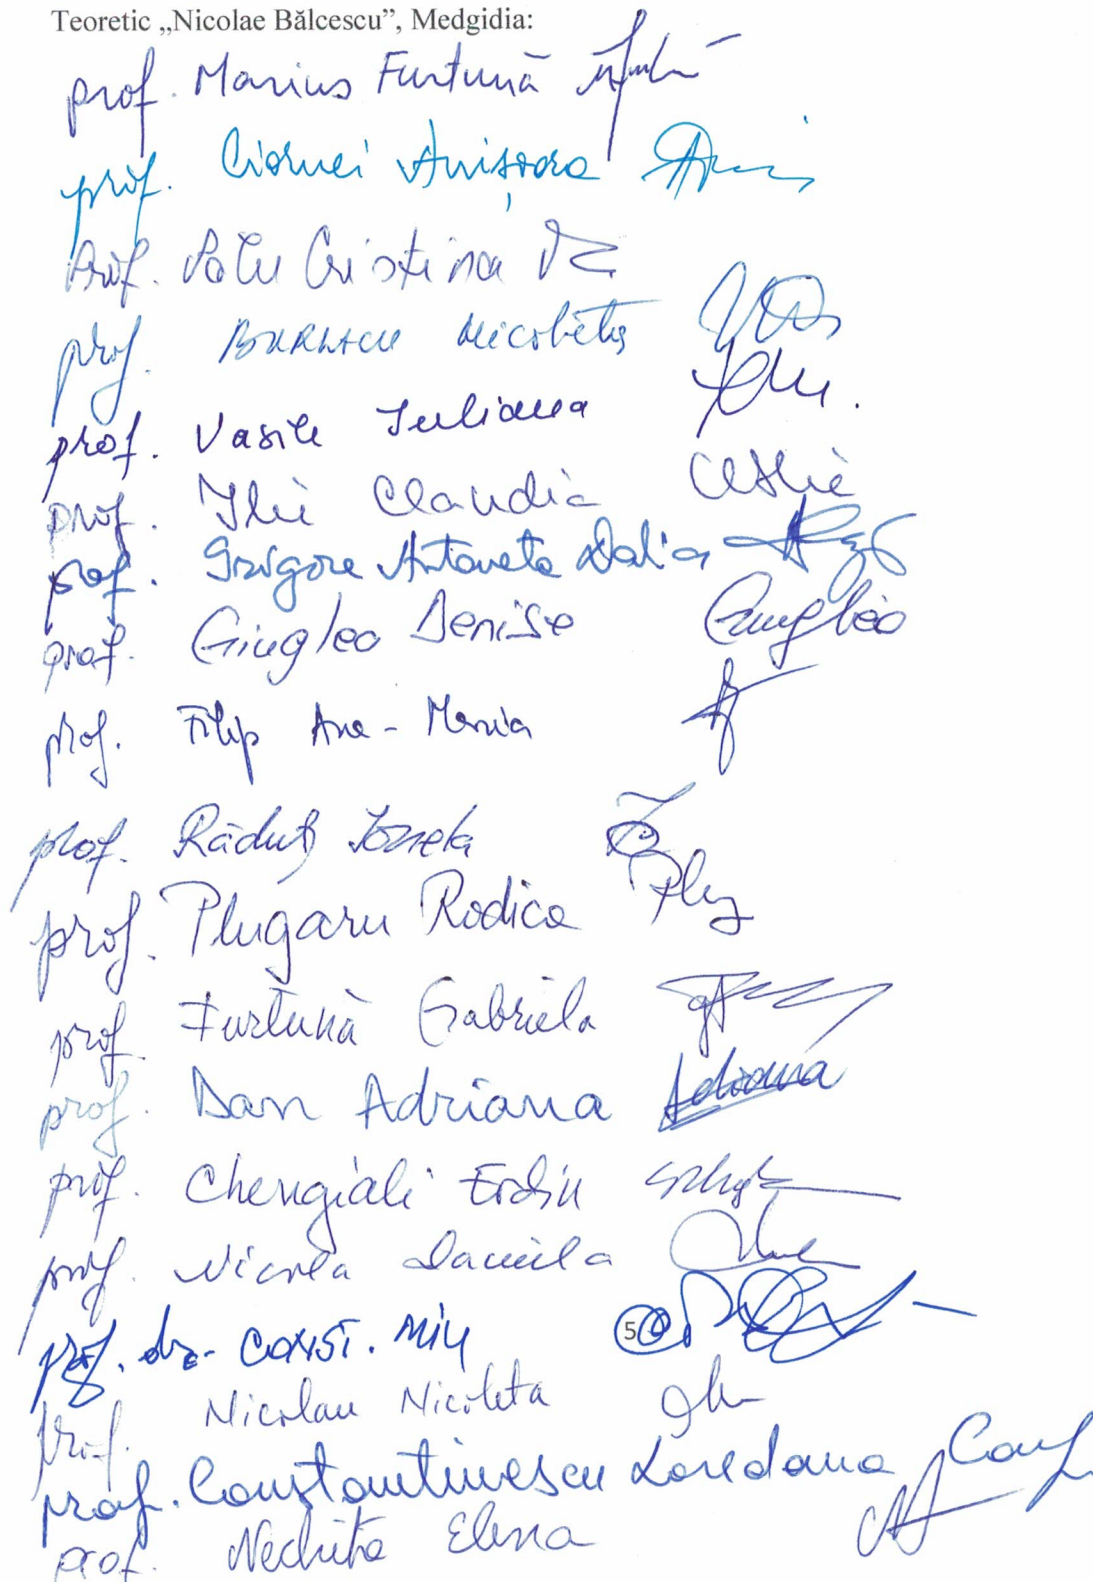 Teoretic „Nicolae Bălcescu”, Medgidia:
prof. Marius Furtună
prof. Ciornei Anișoara
Prof. Patu Cristina
prof. BURLACU Nicoleta
prof. Vasile Iuliana
prof. Ilie Claudia
prof. Grigore Antoneta Dalia
prof. Giugleo Denise Giugleo
prof. Filip Ana-Maria
prof. Răduț Ionela
prof. Plugaru Rodica
prof. Furtună Gabriela
prof. Dan Adriana Adriana
prof. Chengiali Erdin
prof. Nicolea Daniela
prof. dr. CONST. MIU 5
prof. Nicolau Nicoleta
prof. Constantinescu Loredana
prof. Nechita Elena